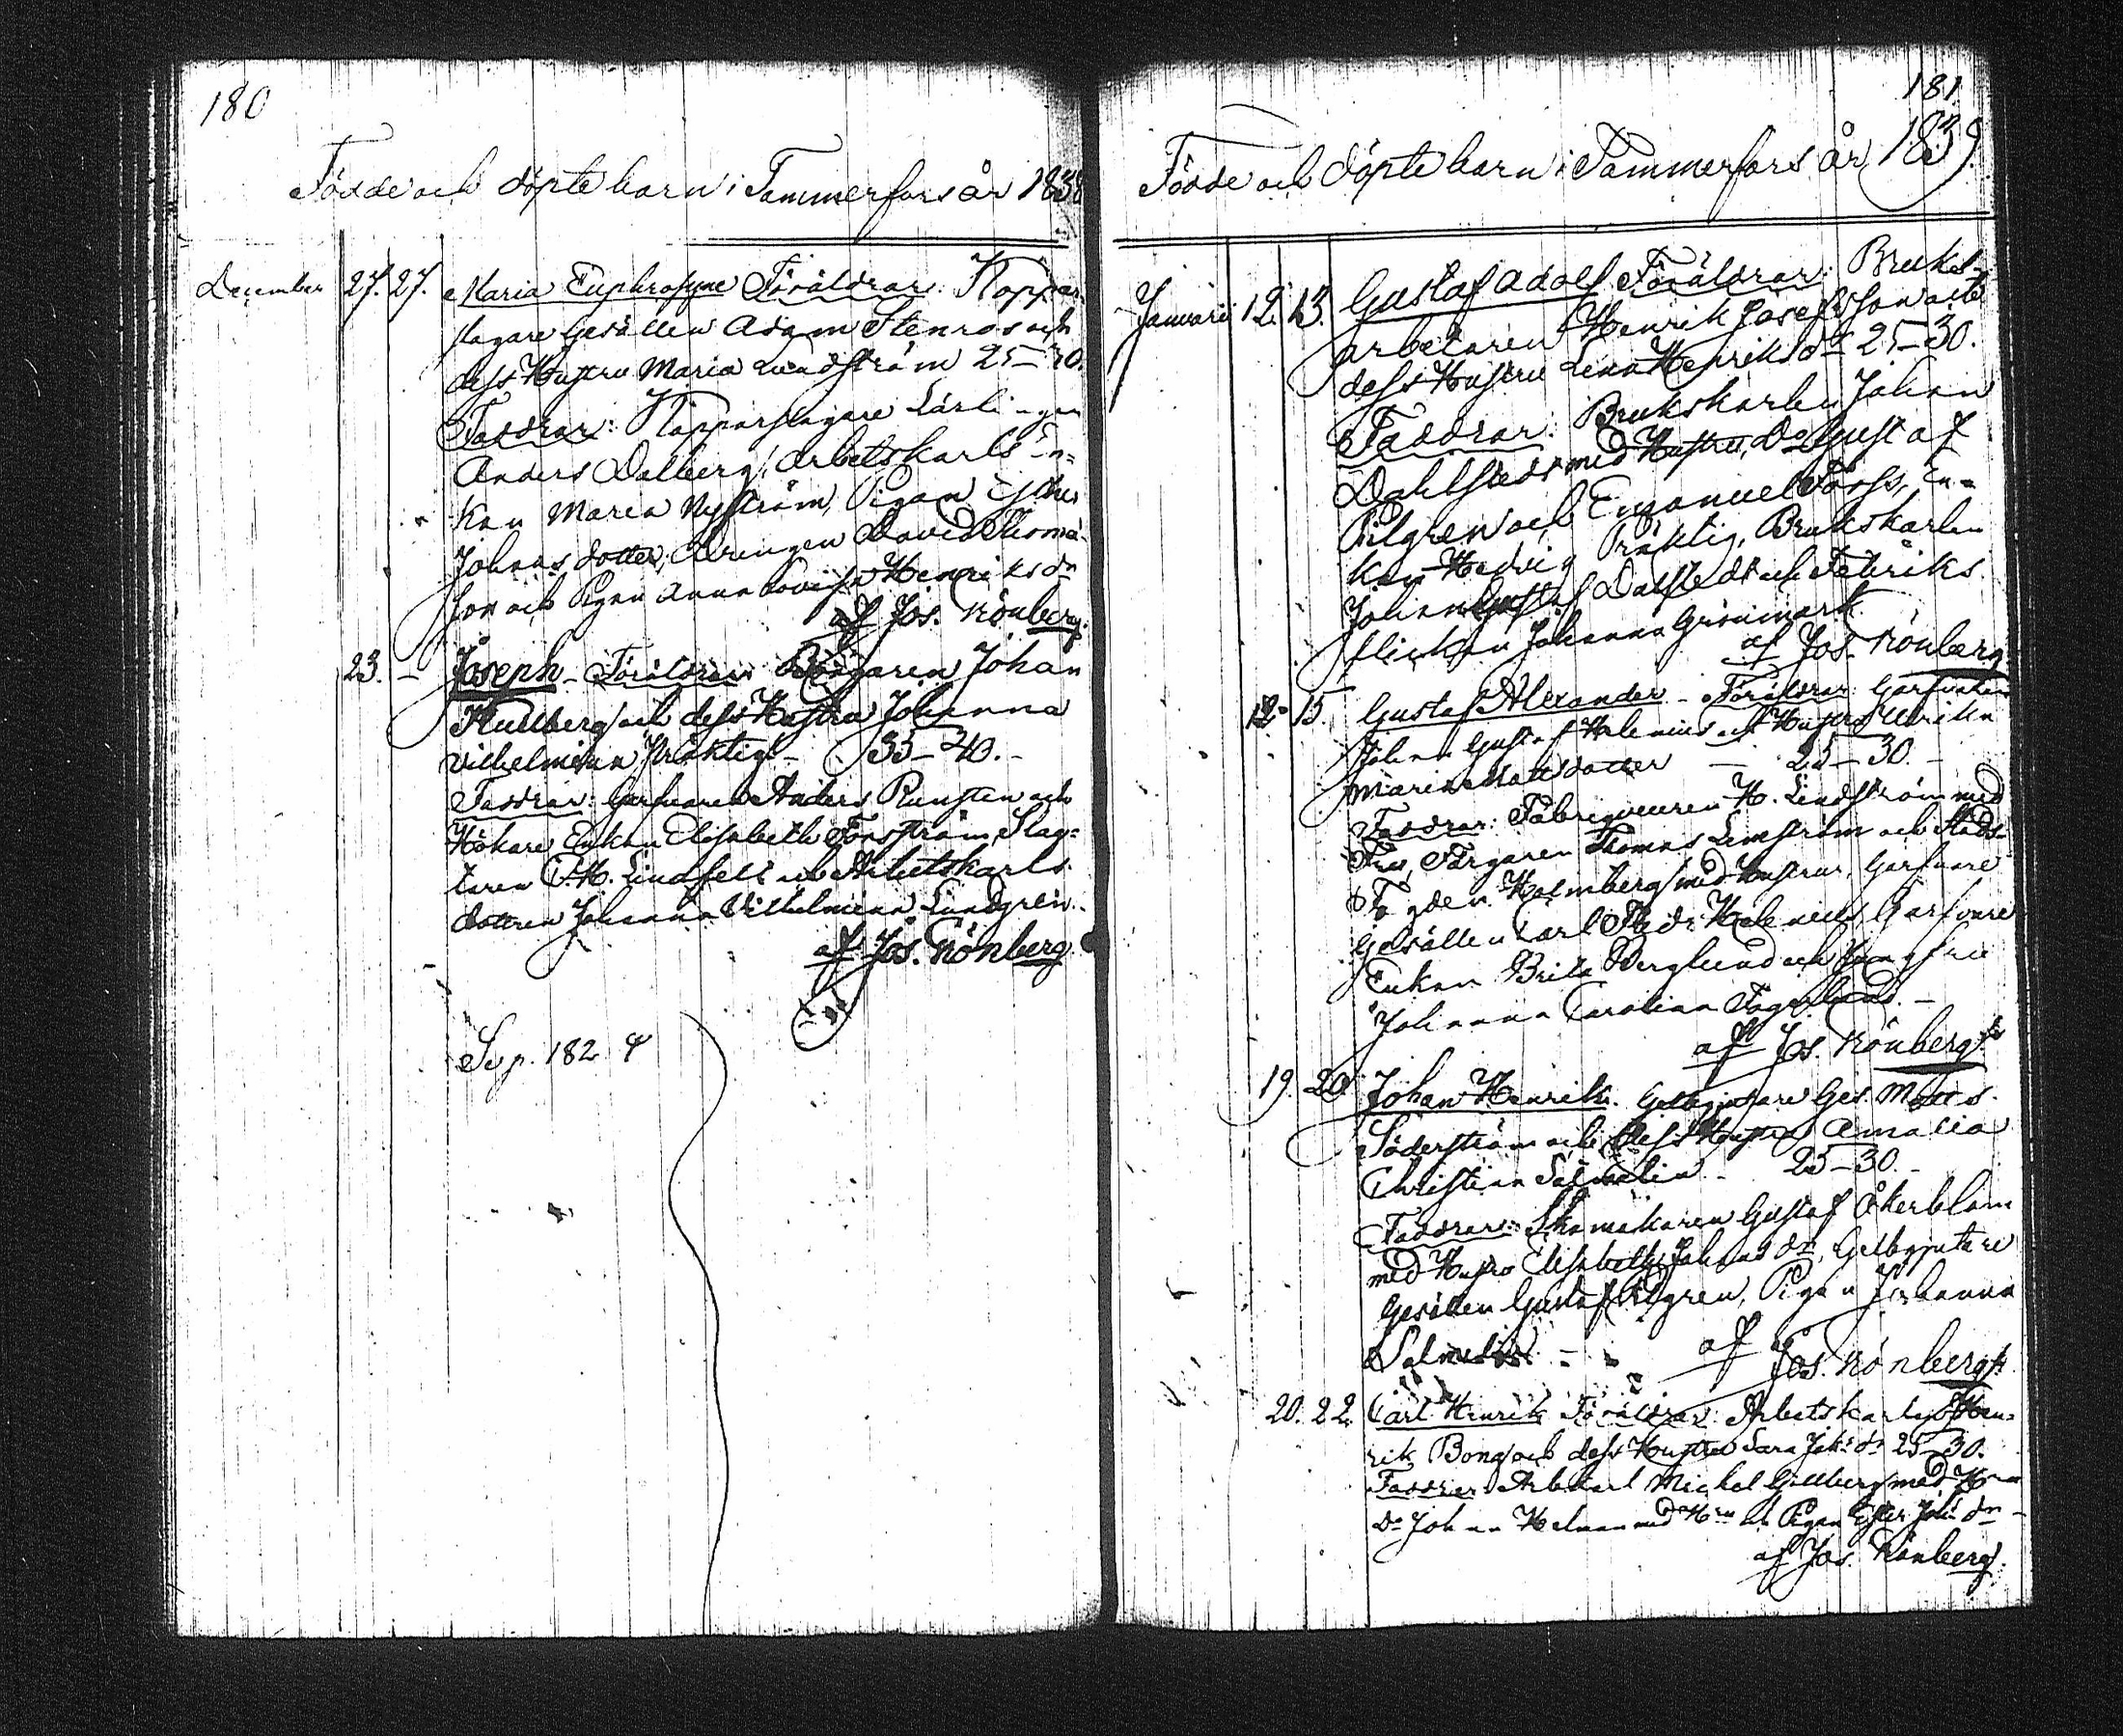 180
Födde och döpte barn i Tammerfors år 1838
December 27. 27. Maria Euphrosyne Föräldrar: Koppar-
slagare Gesällen Adam Stenros och
dess Hustru Maria Lundström 25–30.
Faddrar: Kopparslagare Lärlingen
Anders Dalberg, Arbetskarls En-
kan Maria Nyström, Pigan
Johans dotter, Drengen David Thomæ
son och Pigan Anna Lovisa Henriksdr
af Jos. Grönberg.
23. – Joseph – Föräldrar: Johan
och dess Hustru Johanna
Vilhelmina Präktig – 35–40. –
Faddrar: Garfvaren Anders Runsten och
Hökare Enkan Elisabeth Forsström, Slag-
taren C. H. Lindfelt och Arbetskarls
dottren Johanna Vilhelmina Lundgren.
af Jos. Grönberg
Se p. 182
181.
Födde och döpte barn i Tammerfors år 1839.
Januari 12. 13. Gustaf Adolf Föräldrar: Bruks-
arbetaren Henrik Josefsson och
dess Hustru Lena Henriksdr 25–30.
Faddrar: Brukskarlen Johan
Dahlstedt med Hustru, Do Gustaf
Pilgren och Emanuel Forss, En-
kan Hedvig Präktig, Brukskarlen
Johan Gustaf Dalstedt och Fabriks
flickan Johanna Grönmark
af Jos. Grönberg
12. 15. Gustaf Alexander – Föräldrar: Garfvaren
Johan Gustaf Helenius och Hustru Ulrika
Maria Mattsdotter – 25–30. –
Faddrar: Fabriqueuren H. Lindström med
Fru, Färgaren Thomas Limström och Stads-
Fogden Holmberg med Hustrur, Garfvare
Gesällen Carl Fredr. Helenius, Garfvare
Enkan Brita Berglund och Jungfru
Johanna Carolina Fagerlund. –
af Jos. Grönberg
19. 20. Johan Henrik. Gelbgjutare Ges. Matts
Söderström och dess Hustru Amalia
Christina Salmelin – 25–30. –
Faddrar: Skomakaren Gustaf Åkerblom
med Hustru Elisabeth Johansdr, Gelbgjutare
Gesällen Gustaf Pilgren, Pigan Johanna
Salmelin – af Jos. Grönberg
20. 22. Carl Henrik Föräldrar: Arbetskarlen Hen-
rik Bong och dess Hustru Sara Joh:dr 25–30.
Faddrar: Arb.karl Michel Gillberg med H–u
Do Johan Helman med H–u och Pigan Ester Joh:dr –
af Jos. Grönberg.